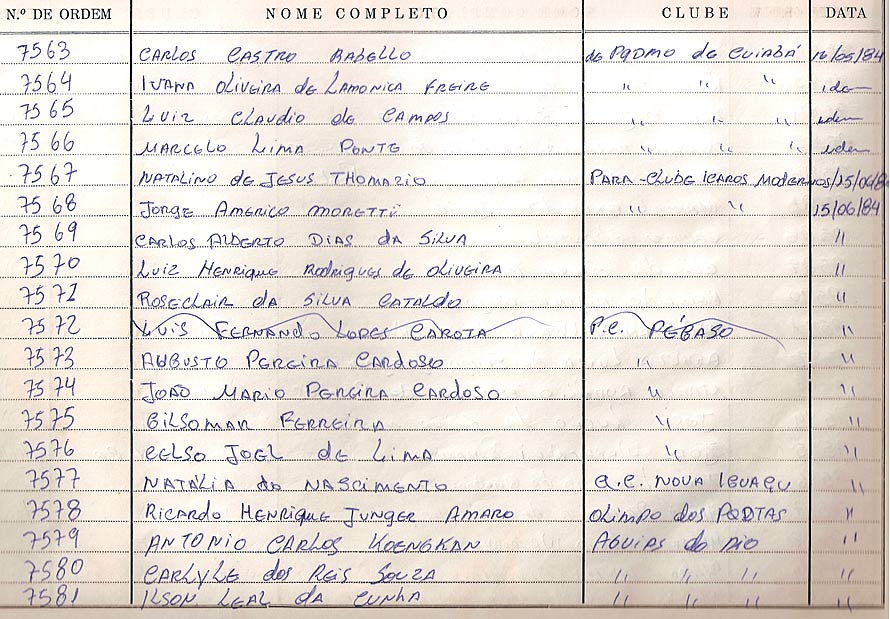 N.º DE ORDEM NOME COMPLETO CLUBE DATA
7563 CARLOS CASTRO RABELLO de PQDMO de CUIABÁ 12/05/84
7564 IVANA OLIVEIRA de LAMONICA FREIRE " " " idem
7565 LUIZ CLAUDIO de CAMPOS " " " idem
7566 MARCELO LIMA PONTE " " " idem
7567 NATALINO de JESUS THOMAZIO PARA-CLUBE ICAROS MODERNOS/15/06/84
7568 JORGE AMERICO MORETTI " " 15/06/84
7569 CARLOS ALBERTO DIAS da SILVA "
7570 LUIZ HENRIQUE RODRIGUES DE OLIVEIRA "
7571 ROSECLAIR da SILVA CATALDO "
7572 LUIS FERNANDO LOPES P.C. PÉGASO "
7573 AUGUSTO PEREIRA CARDOSO " "
7574 JOÃO MARIO PEREIRA CARDOSO " "
7575 GILSOMAR FERREIRA " "
7576 CELSO JOEL de LIMA " "
7577 NATÁLIA do NASCIMENTO a.C. NOVA IGUAÇU "
7578 RICARDO HENRIQUE JUNGER AMARO OLIMPO dos PQDTAS "
7579 ANTONIO CARLOS KOENGKAN AGUIAS do RIO "
7580 CARLYLE dos REIS SOUZA " " " "
7581 ILSON LEAL DA CUNHA " " " "